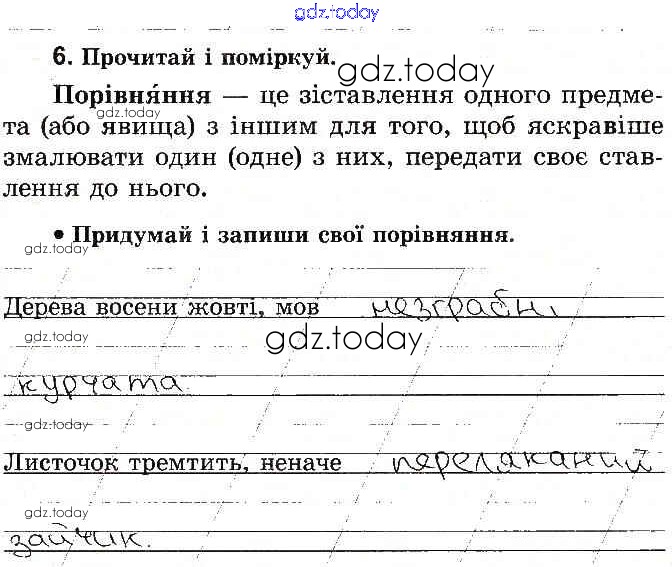 gdz.today
6. Прочитай і поміркуй.
gdz.today
Порівня́ння — це зіставлення одного предме-
gdz.today
та (або явища) з іншим для того, щоб яскравіше
змалювати один (одне) з них, передати своє став-
gdz.today
лення до нього.
• Придумай і запиши свої порівняння.
gdz.today
Дерева восени жовті, мов незграбні
gdz.today
gdz.today
курчата
gdz.today
Листочок тремтить, неначе переляканий
gdz.today
зайчик.